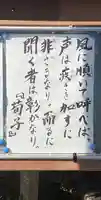 風に順いて呼べば、
声は疾きを加すに
非ざるなり。而るに
聞く者は彰かなり。
『荀子』